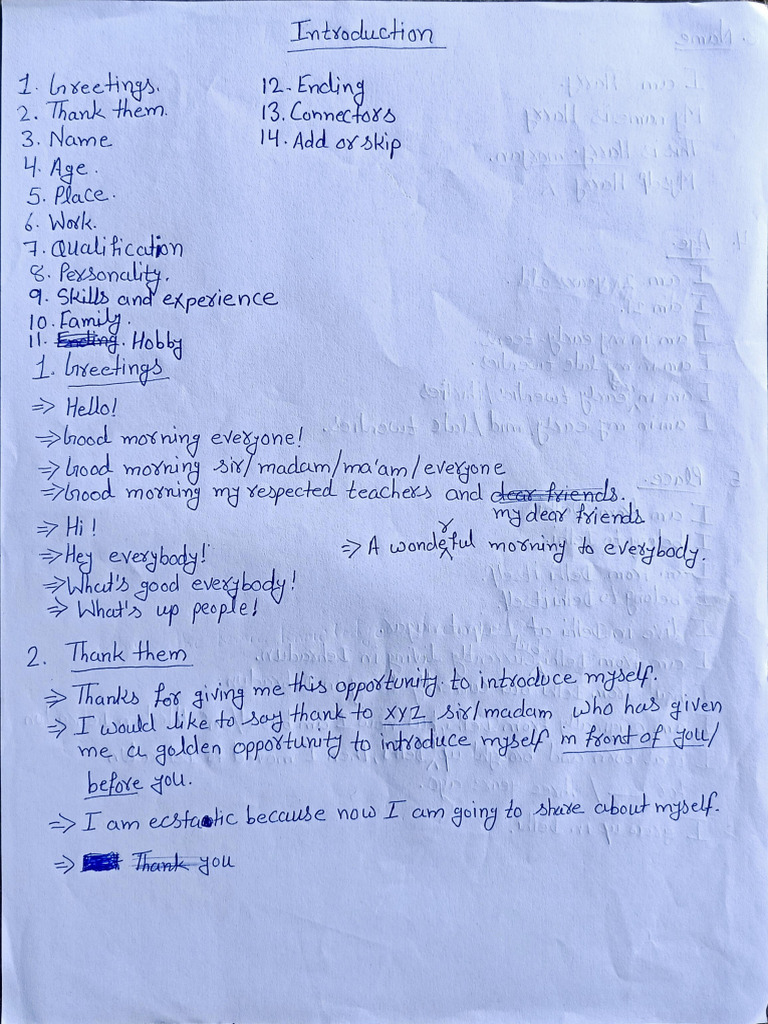 Introduction
1. Greetings.
2. Thank them.
3. Name
4. Age.
5. Place.
6. Work.
7. Qualification
8. Personality.
9. Skills and experience
10. Family.
11. Ending. Hobby
12. Ending
13. Connectors
14. Add or skip
1. Greetings
⇒ Hello!
⇒ Good morning everyone!
⇒ Good morning sir/madam/ma'am/everyone
⇒ Good morning my respected teachers and dear friends.
my dear friends
⇒ Hi!
⇒ Hey everybody!
⇒ A wonderful morning to everybody.
⇒ What's good everybody!
⇒ What's up people!
2. Thank them
⇒ Thanks for giving me this opportunity to introduce myself.
⇒ I would like to say thank to XYZ sir/madam who has given
me a golden opportunity to introduce myself in front of you/
before you.
⇒ I am ecstatic because now I am going to share about myself.
⇒ Thank you